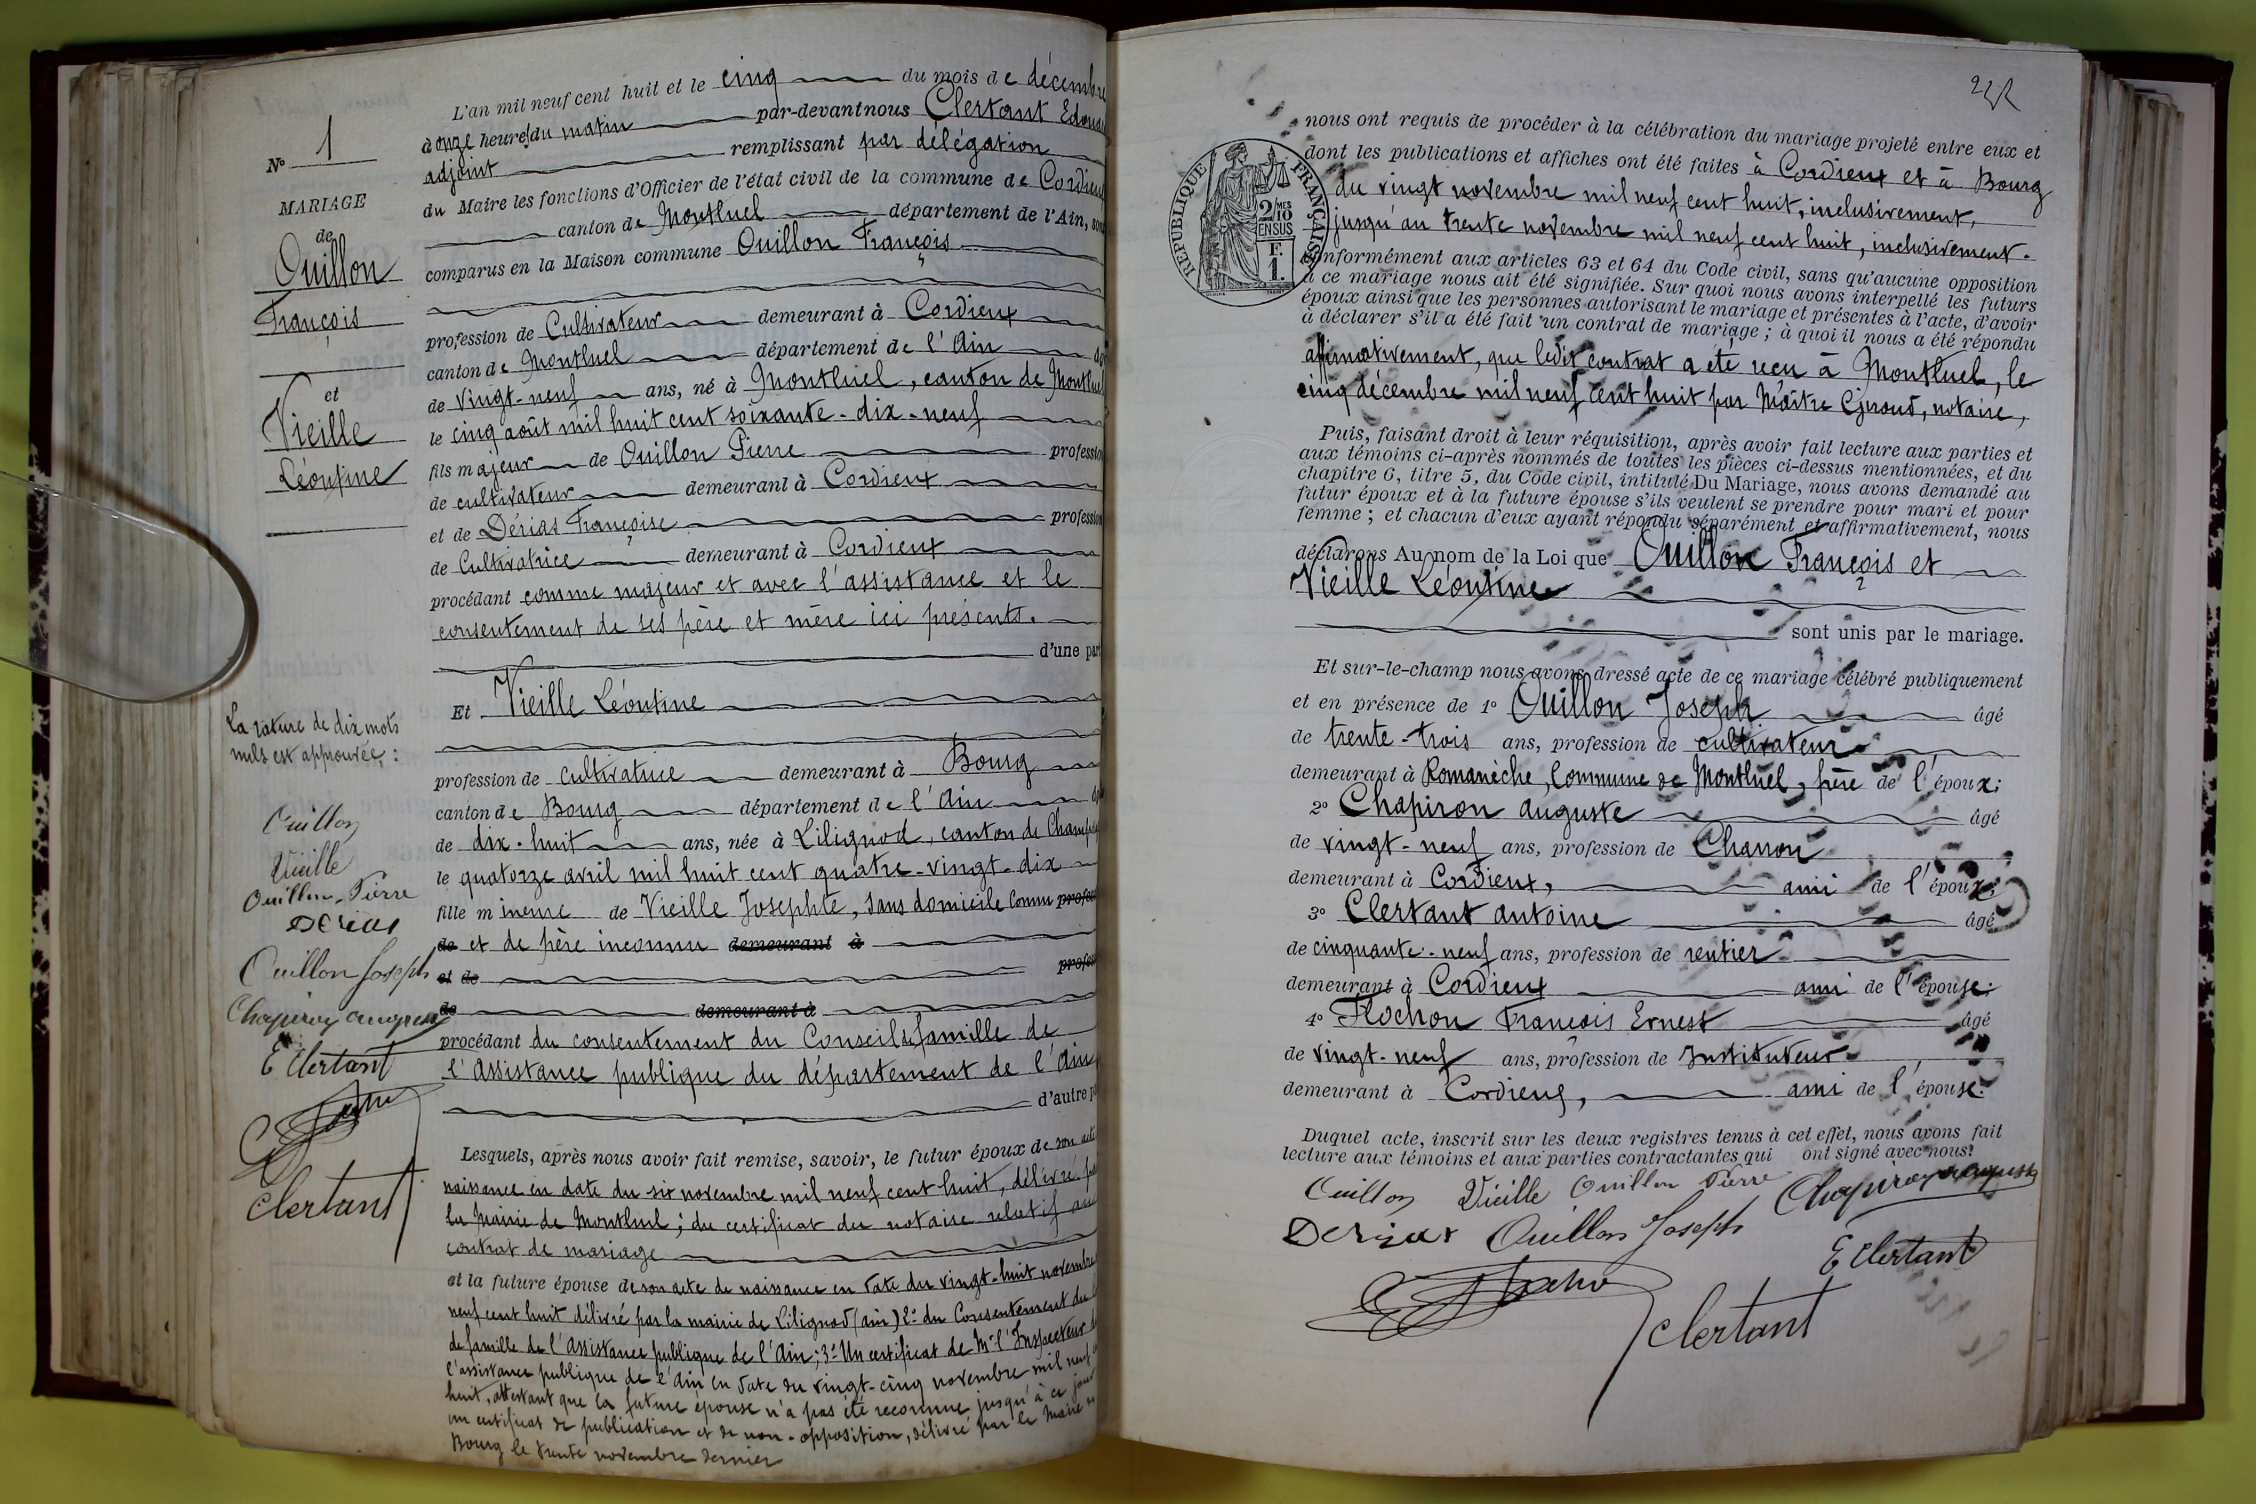 L'an mil neuf cent huit et le cinq du mois de décembre
à onze heures du matin par-devant nous Clertant
adjoint remplissant par délégation
du Maire les fonctions d'Officier de l'état civil de la commune de Cordieux
canton de Montluel département de l'Ain, sont
comparus en la Maison commune Ouillon François
profession de Cultivateur demeurant à Cordieux
canton de Montluel département de l'Ain
de vingt-neuf ans, né à Montluel, canton de Montluel
le cinq août mil huit cent soixante-dix-neuf
fils majeur de Ouillon Pierre profession
de cultivateur demeurant à Cordieux
et de Dérias Françoise profession
de Cultivatrice demeurant à Cordieux
procédant comme majeur et avec l'assistance et le
consentement de ses père et mère ici présents.
d'une part
Et Vieille Léontine
profession de cultivatrice demeurant à Bourg
canton de Bourg département de l'Ain
de dix-huit ans, née à Lilignod, canton de
le quatorze avril mil huit cent quatre-vingt-dix
fille mineure de Vieille Josephte, sans domicile connu
de et de père inconnu demeurant à
et de
de demeurant à
procédant du consentement du Conseil de famille de
l'Assistance publique du département de l'Ain
d'autre
Lesquels, après nous avoir fait remise, savoir, le futur époux de son acte
naissance en date du six novembre mil neuf cent huit, délivré
la Mairie de Montluel ; du certificat du notaire relatif au
contrat de mariage
et la future épouse de son acte de naissance en date du vingt-huit novembre
neuf cent huit délivré par la mairie de Lilignod (ain) 2° du Consentement du
de famille de l'Assistance publique de l'Ain ; 3° Un certificat de Mr l'Inspecteur
l'assistance publique de l'Ain en date du vingt-cinq novembre mil neuf
huit, attestant que la future épouse n'a pas été reconnue jusqu'à ce jour
un certificat de publication et de non-opposition, délivré par le Maire
Bourg le trente novembre dernier
N° 1
MARIAGE
de
Ouillon
François
et
Vieille
Léontine
La rature de dix mots
nuls est approuvée :
Ouillon
Vieille
Ouillon Pierre
Derias
Ouillon Joseph
Chapiron
E Clertant
Clertant
nous ont requis de procéder à la célébration du mariage projeté entre eux et
dont les publications et affiches ont été faites à Cordieux et à Bourg
du vingt novembre mil neuf cent huit, inclusivement,
jusqu'au trente novembre mil neuf cent huit, inclusivement.
conformément aux articles 63 et 64 du Code civil, sans qu'aucune opposition
à ce mariage nous ait été signifiée. Sur quoi nous avons interpellé les futurs
époux ainsi que les personnes autorisant le mariage et présentes à l'acte, d'avoir
à déclarer s'il a été fait un contrat de mariage ; à quoi il nous a été répondu
affirmativement, que ledit contrat a été reçu à Montluel, le
cinq décembre mil neuf cent huit par Maître Giroud, notaire,
Puis, faisant droit à leur réquisition, après avoir fait lecture aux parties et
aux témoins ci-après nommés de toutes les pièces ci-dessus mentionnées, et du
chapitre 6, titre 5, du Code civil, intitulé Du Mariage, nous avons demandé au
futur époux et à la future épouse s'ils veulent se prendre pour mari et pour
femme ; et chacun d'eux ayant répondu séparément et affirmativement, nous
déclarons Au nom de la Loi que Ouillon François et
Vieille Léontine
sont unis par le mariage.
Et sur-le-champ nous avons dressé acte de ce mariage célébré publiquement
et en présence de 1° Ouillon Joseph âgé
de trente-trois ans, profession de cultivateur
demeurant à Romanèche, Commune de Montluel, frère de l'époux ;
2° Chapiron Auguste âgé
de vingt-neuf ans, profession de Charron
demeurant à Cordieux, ami de l'époux ;
3° Clertant antoine âgé
de cinquante-neuf ans, profession de rentier
demeurant à Cordieux ami de l'épouse ;
4° Flochon François Ernest âgé
de vingt-neuf ans, profession de Instituteur
demeurant à Cordieux, ami de l'épouse.
Duquel acte, inscrit sur les deux registres tenus à cet effet, nous avons fait
lecture aux témoins et aux parties contractantes qui ont signé avec nous.
Ouillon Vieille Ouillon Pierre Chapiron auguste
Derias Ouillon Joseph
E Clertant
Clertant
RÉPUBLIQUE FRANÇAISE
2/10MES
EN SUS
F.
1.